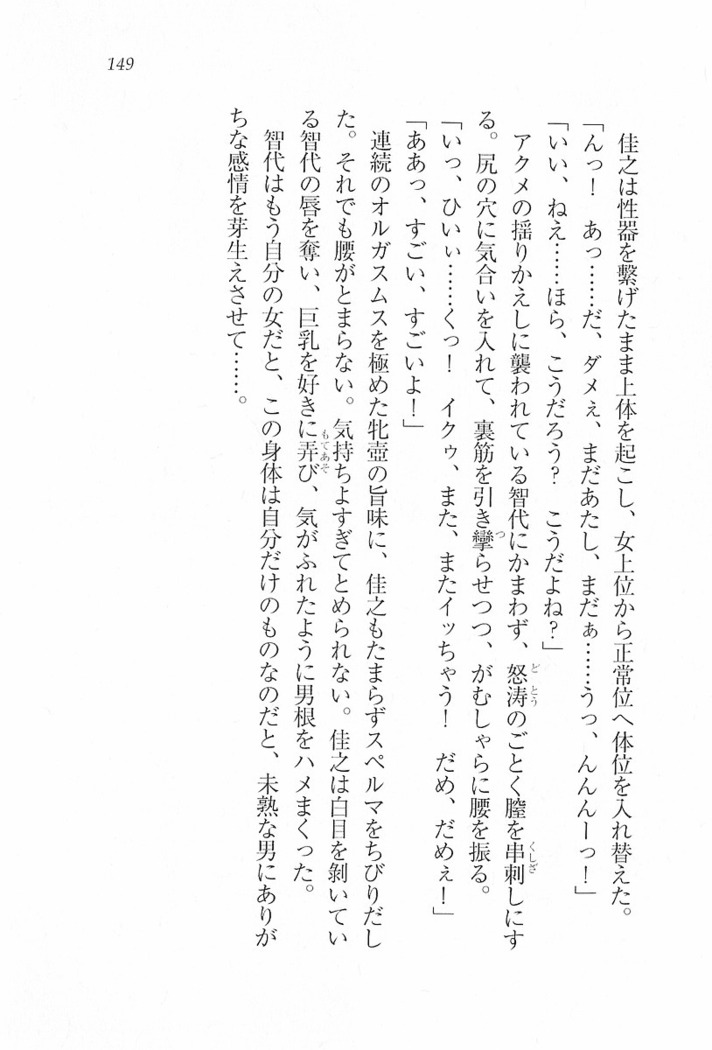 149
佳之は性器を繋げたまま上体を起こし、女上位から正常位へ体位を入れ替えた。
「んっ！　あっ……だ、ダメぇ、まだあたし、まだぁ……うっ、んんんーっ！」
「いい、ねえ……ほら、こうだろう？　こうだよね？」
アクメの揺りかえしに襲われている智代にかまわず、怒涛のごとく膣を串刺しにす
る。尻の穴に気合いを入れて、裏筋を引き攣らせつつ、がむしゃらに腰を振る。
「いっ、ひいぃ……くっ！　イクゥ、また、またイッちゃう！　だめ、だめぇ！」
「ああっ、すごい、すごいよ！」
連続のオルガスムスを極めた牝壺の旨味に、佳之もたまらずスペルマをちびりだし
た。それでも腰がとまらない。気持ちよすぎてとめられない。佳之は白目を剝いてい
る智代の唇を奪い、巨乳を好きに弄び、気がふれたように男根をハメまくった。
智代はもう自分の女だと、この身体は自分だけのものなのだと、未熟な男にありが
ちな感情を芽生えさせて……。